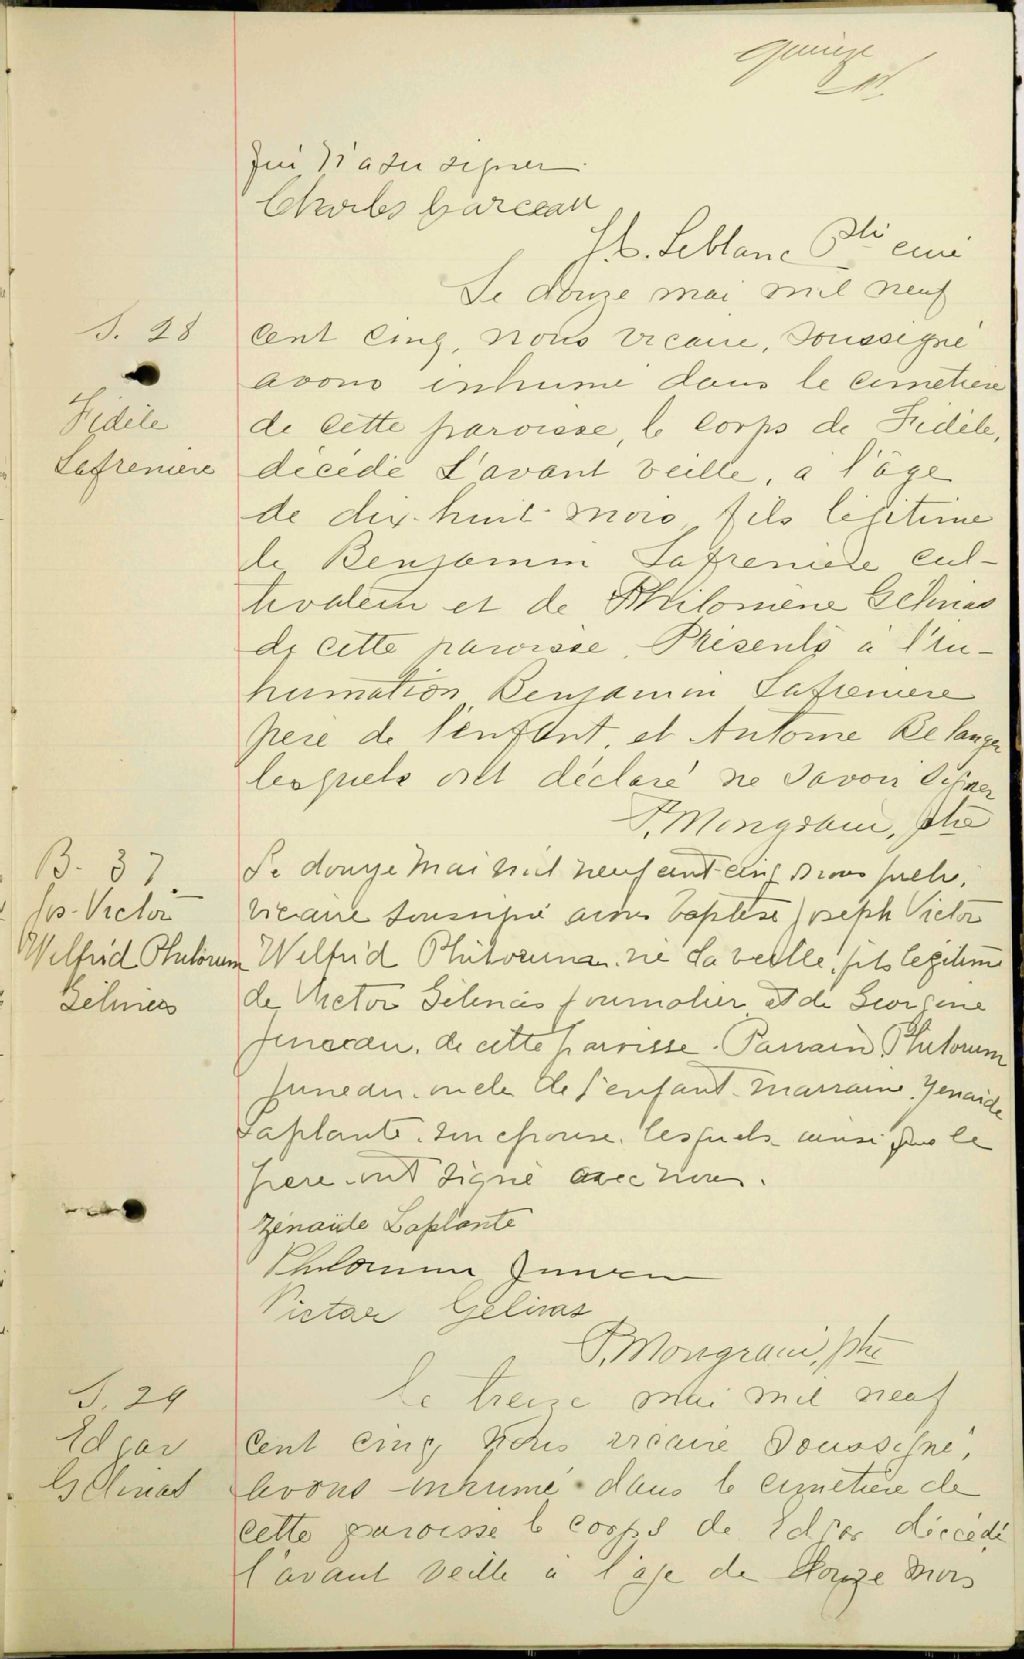 quinze
qui n'a su signer.
Charles Garceau
J. C. Leblanc Ptre curé
Le douze mai mil neuf
S. 28
cent cinq, nous vicaire, soussigné
avons inhumé dans le cimetière
Fidèle
de cette paroisse, le corps de Fidèle,
Lafreniere
décédé l'avant veille, a l'âge
de dix-huit mois, fils légitime
de Benjamin Lafreniere cul-
tivateur et de Philomène Gélinas
de cette paroisse. Présents à l'in-
humation, Benjamin Lafreniere
père de l'enfant, et Antoine Belanger
lesquels ont déclaré ne savoir signer
P. Mongrain, ptre
B. 37.
Le douze mai mil neuf cent cinq nous prêtre,
Jos-Victor
vicaire soussigné avons baptisé Joseph Victor
Wilfrid Philorum
Wilfrid Philorum, né la veille, fils légitime
Gélinas
de Victor Gélinas journalier, et de Georgine
Juneau, de cette paroisse. Parrain, Philorum
Juneau, oncle de l'enfant, marraine, Zenaide
Laplante, son epouse, lesquels ainsi que le
père ont signé avec nous.
Zénaïde Laplante
Philorum Juneau
Victor Gélinas
P. Mongrain, ptre
S. 29
Le treize mai mil neuf
Edgar
cent cinq, nous vicaire soussigné,
Gélinas
avons inhumé dans le cimetière de
cette paroisse le corps de Edgar déccédé
l'avant veille à l'âge de douze mois